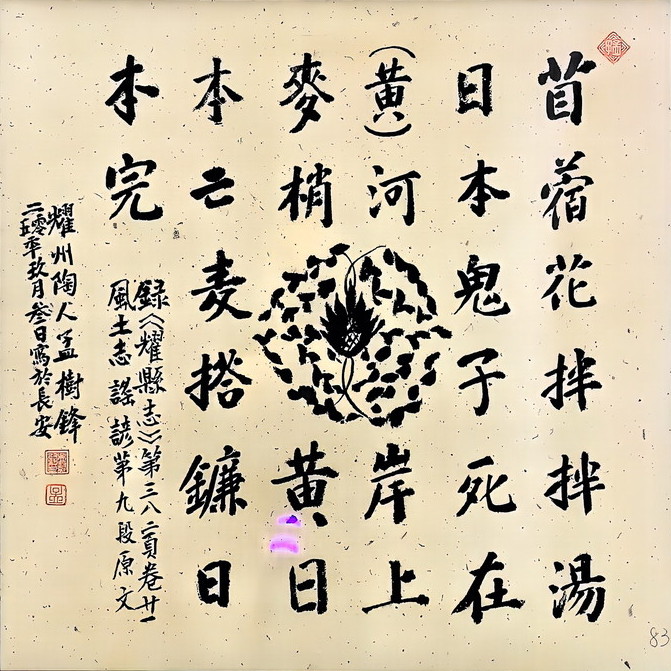 苜蓿花拌拌湯
日本鬼子死在
(黃)河岸上
麥梢黃日
本亡麦搭鐮日
本完
錄《耀縣志》第三八二頁卷廿一
風土志謠諺第九段原文
耀州陶人孟樹鋒
二零一五年玖月叁日寫於長安
83